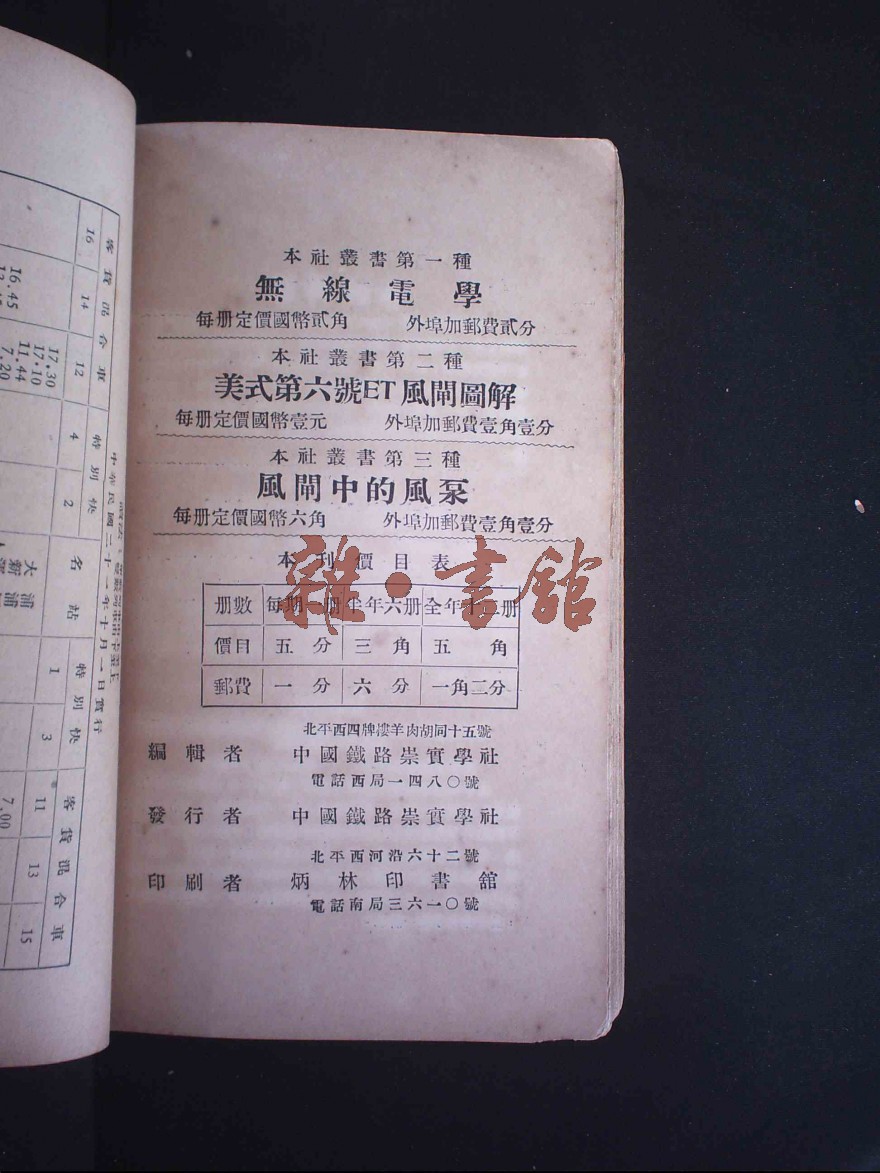 本社叢書第一種
無線電學
每册定價國幣貳角 外埠加郵費貳分
本社叢書第二種
美式第六號ET風閘圖解
每册定價國幣壹元 外埠加郵費壹角壹分
本社叢書第三種
風閘中的風泵
每册定價國幣六角 外埠加郵費壹角壹分
本刊價目表
雜·書館
册數 每期一册 半年六册 全年十二册
價目 五分 三角 五角
郵費 一分 六分 一角二分
北平西四牌樓羊肉胡同十五號
編輯者 中國鐵路崇實學社
電話西局一四八〇號
發行者 中國鐵路崇實學社
北平西河沿六十二號
印刷者 炳林印書館
電話南局三六一〇號
中華民國二十一年十月一日實行
客貨混合車 特別快 名站 特別快 客貨混合車
16 14 12 4 2 1 3 11 13 15
16.45
17.30
17.10
11.44
7.20
7.00